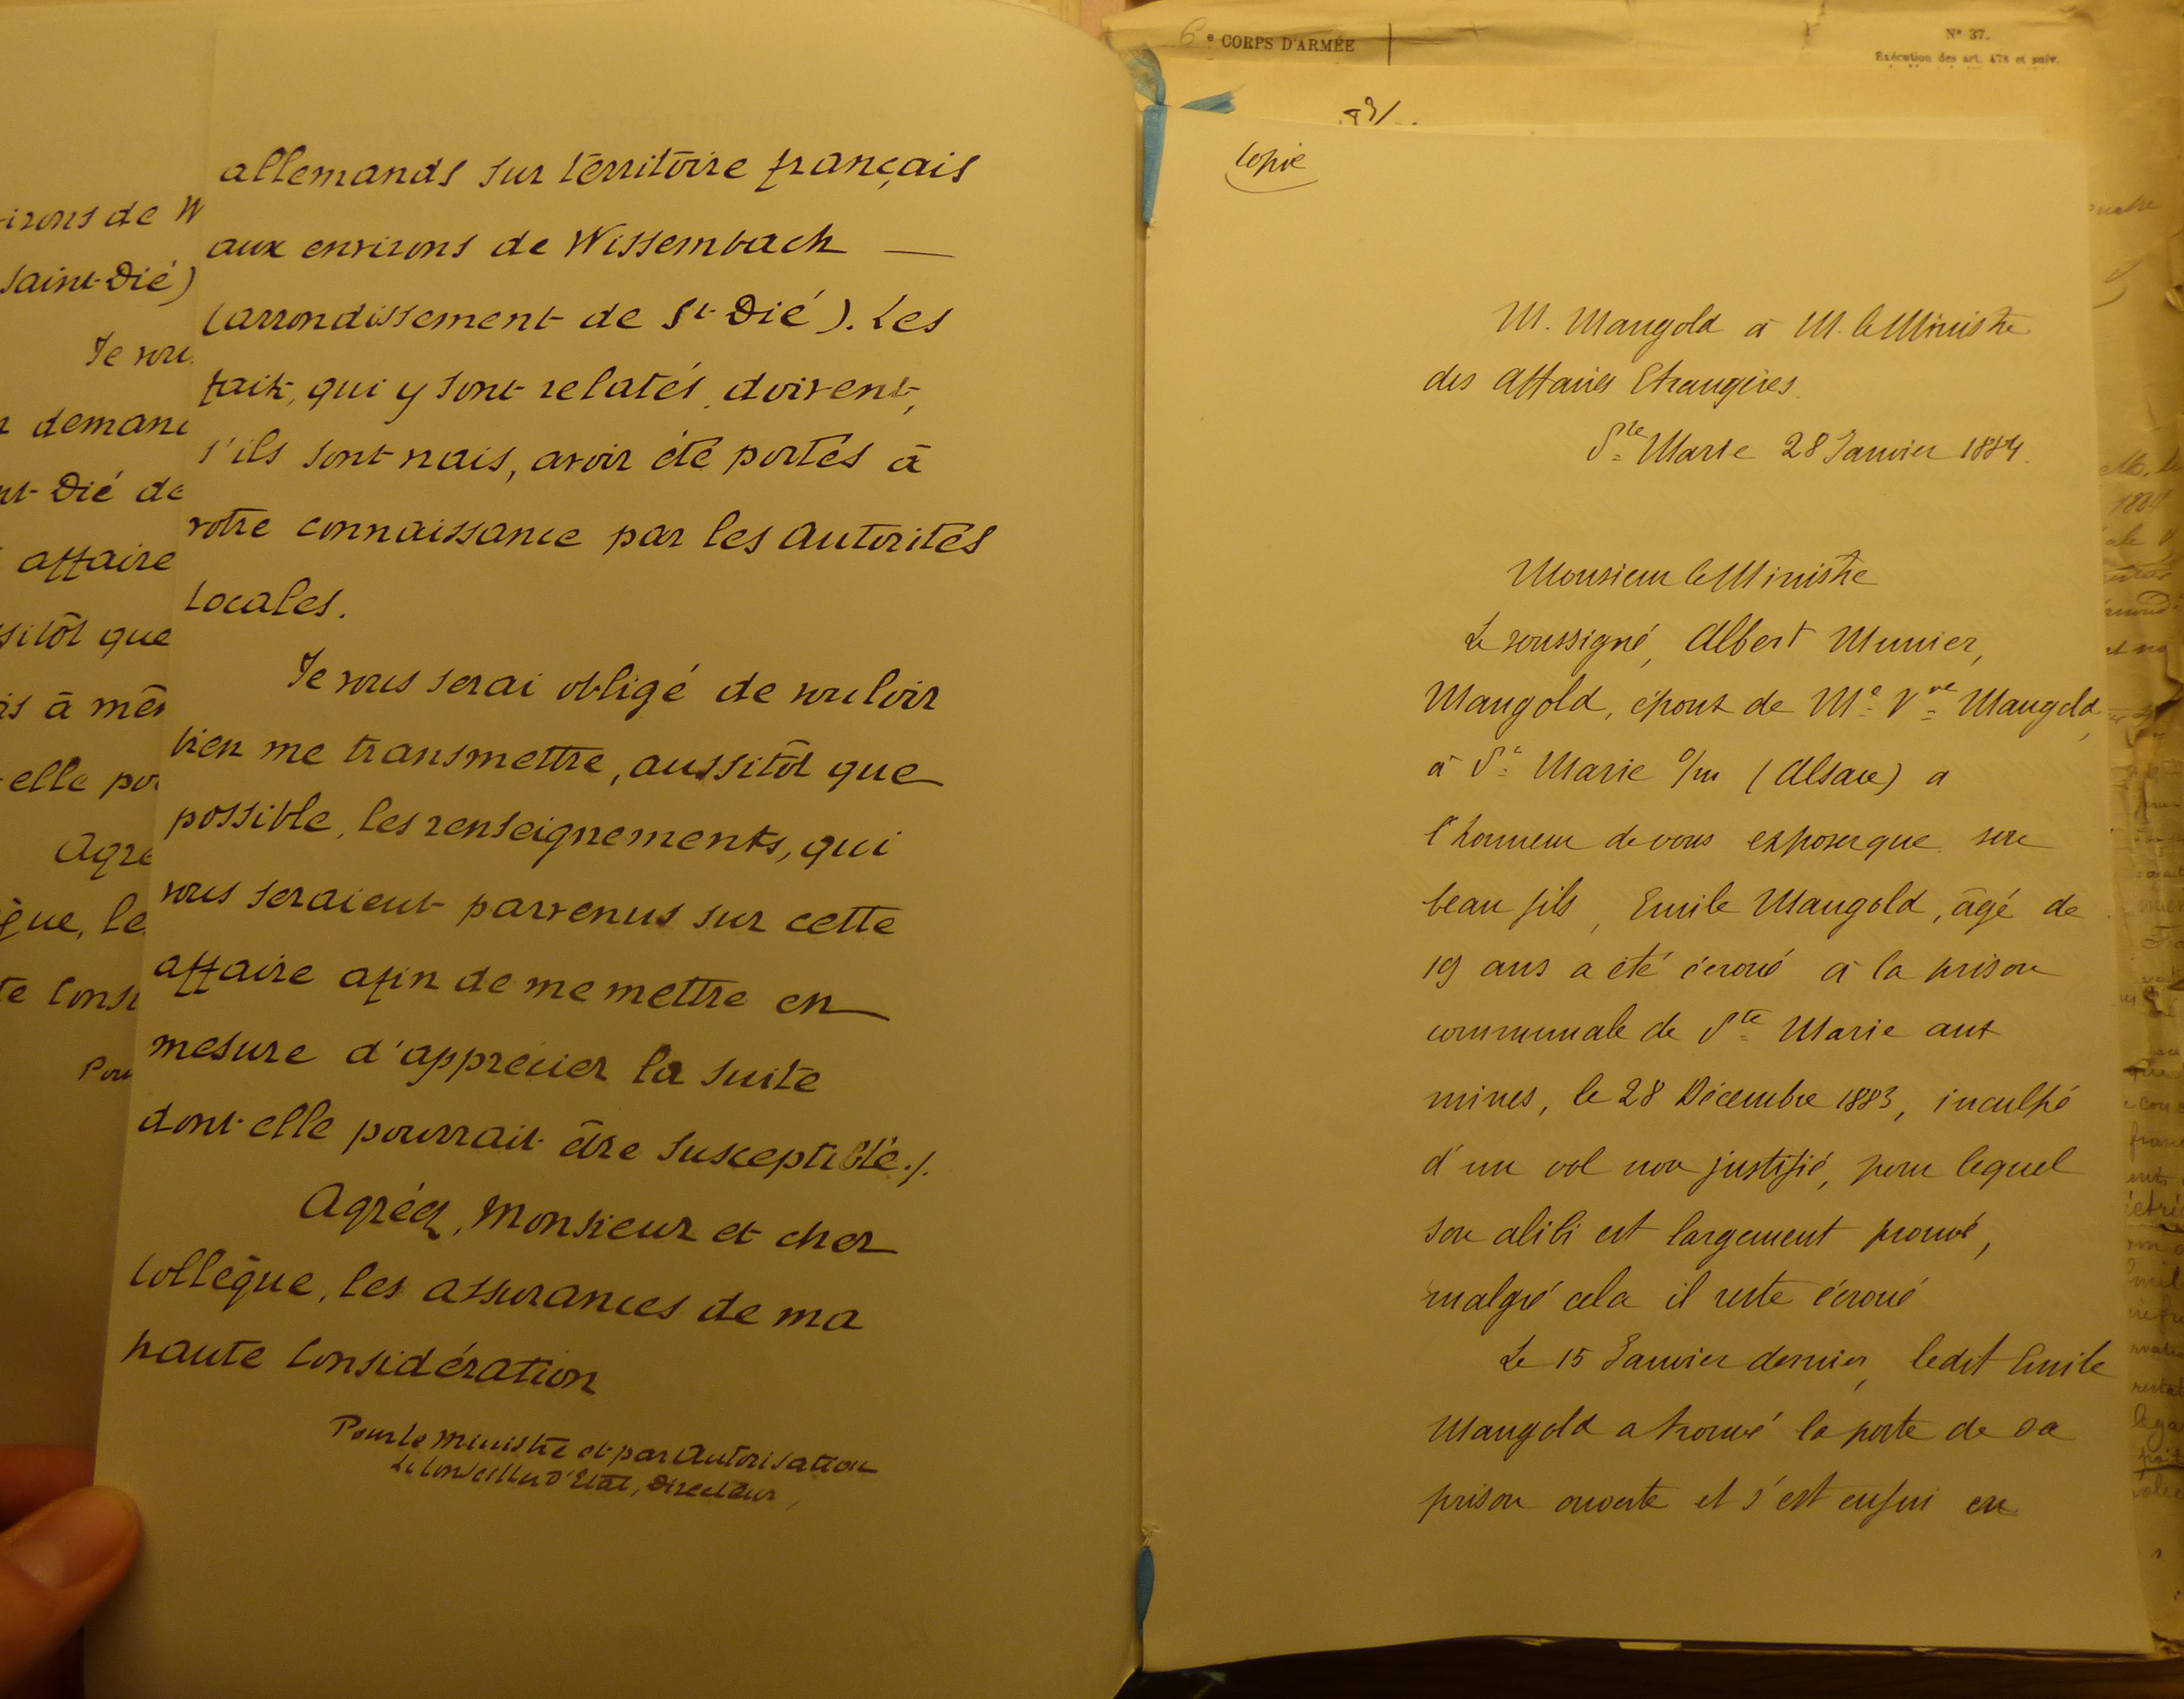 irons de W
Saint-Dié)
Je vou
demand
nt-Dié de
affaire
sitôt que
is à mêm
elle pou
Agré
gue, le
te Consi
Pour
allemands sur territoire français
aux environs de Wissembach —
(arrondissement de St-Dié). Les
faits, qui y sont relatés, doivent,
s'ils sont vrais, avoir été portés à
votre connaissance par les Autorités
Locales.
Je vous serai obligé de vouloir
bien me transmettre, aussitôt que
possible, les renseignements, qui
vous seraient parvenus sur cette
affaire afin de me mettre en
mesure d'apprécier la suite
dont elle pourrait être susceptible./.
Agréez, Monsieur et cher
Collègue, les assurances de ma
haute Considération
Pour le Ministre et par Autorisation
Le Conseiller D'Etat, Directeur,
6e CORPS D'ARMÉE
N° 37.
Exécution des art. 478 et suiv.
Copie
M. Mangold à M. le Ministre
des Affaires Etrangères.
Ste Marie 28 Janvier 1884.
Monsieur le Ministre
Le soussigné, Albert Munier,
Mangold, époux de Me Vve Mangold,
à Ste Marie a/m (Alsace) a
l'honneur de vous exposer que son
beau fils, Emile Mangold, âgé de
19 ans a été écroué à la prison
communale de Ste Marie aux
mines, le 28 Décembre 1883, inculpé
d'un vol non justifié, pour lequel
son alibi est largement prouvé,
malgré cela il reste écroué
Le 15 Janvier dernier, ledit Emile
Mangold a trouvé la porte de sa
prison ouverte et s'est enfui en